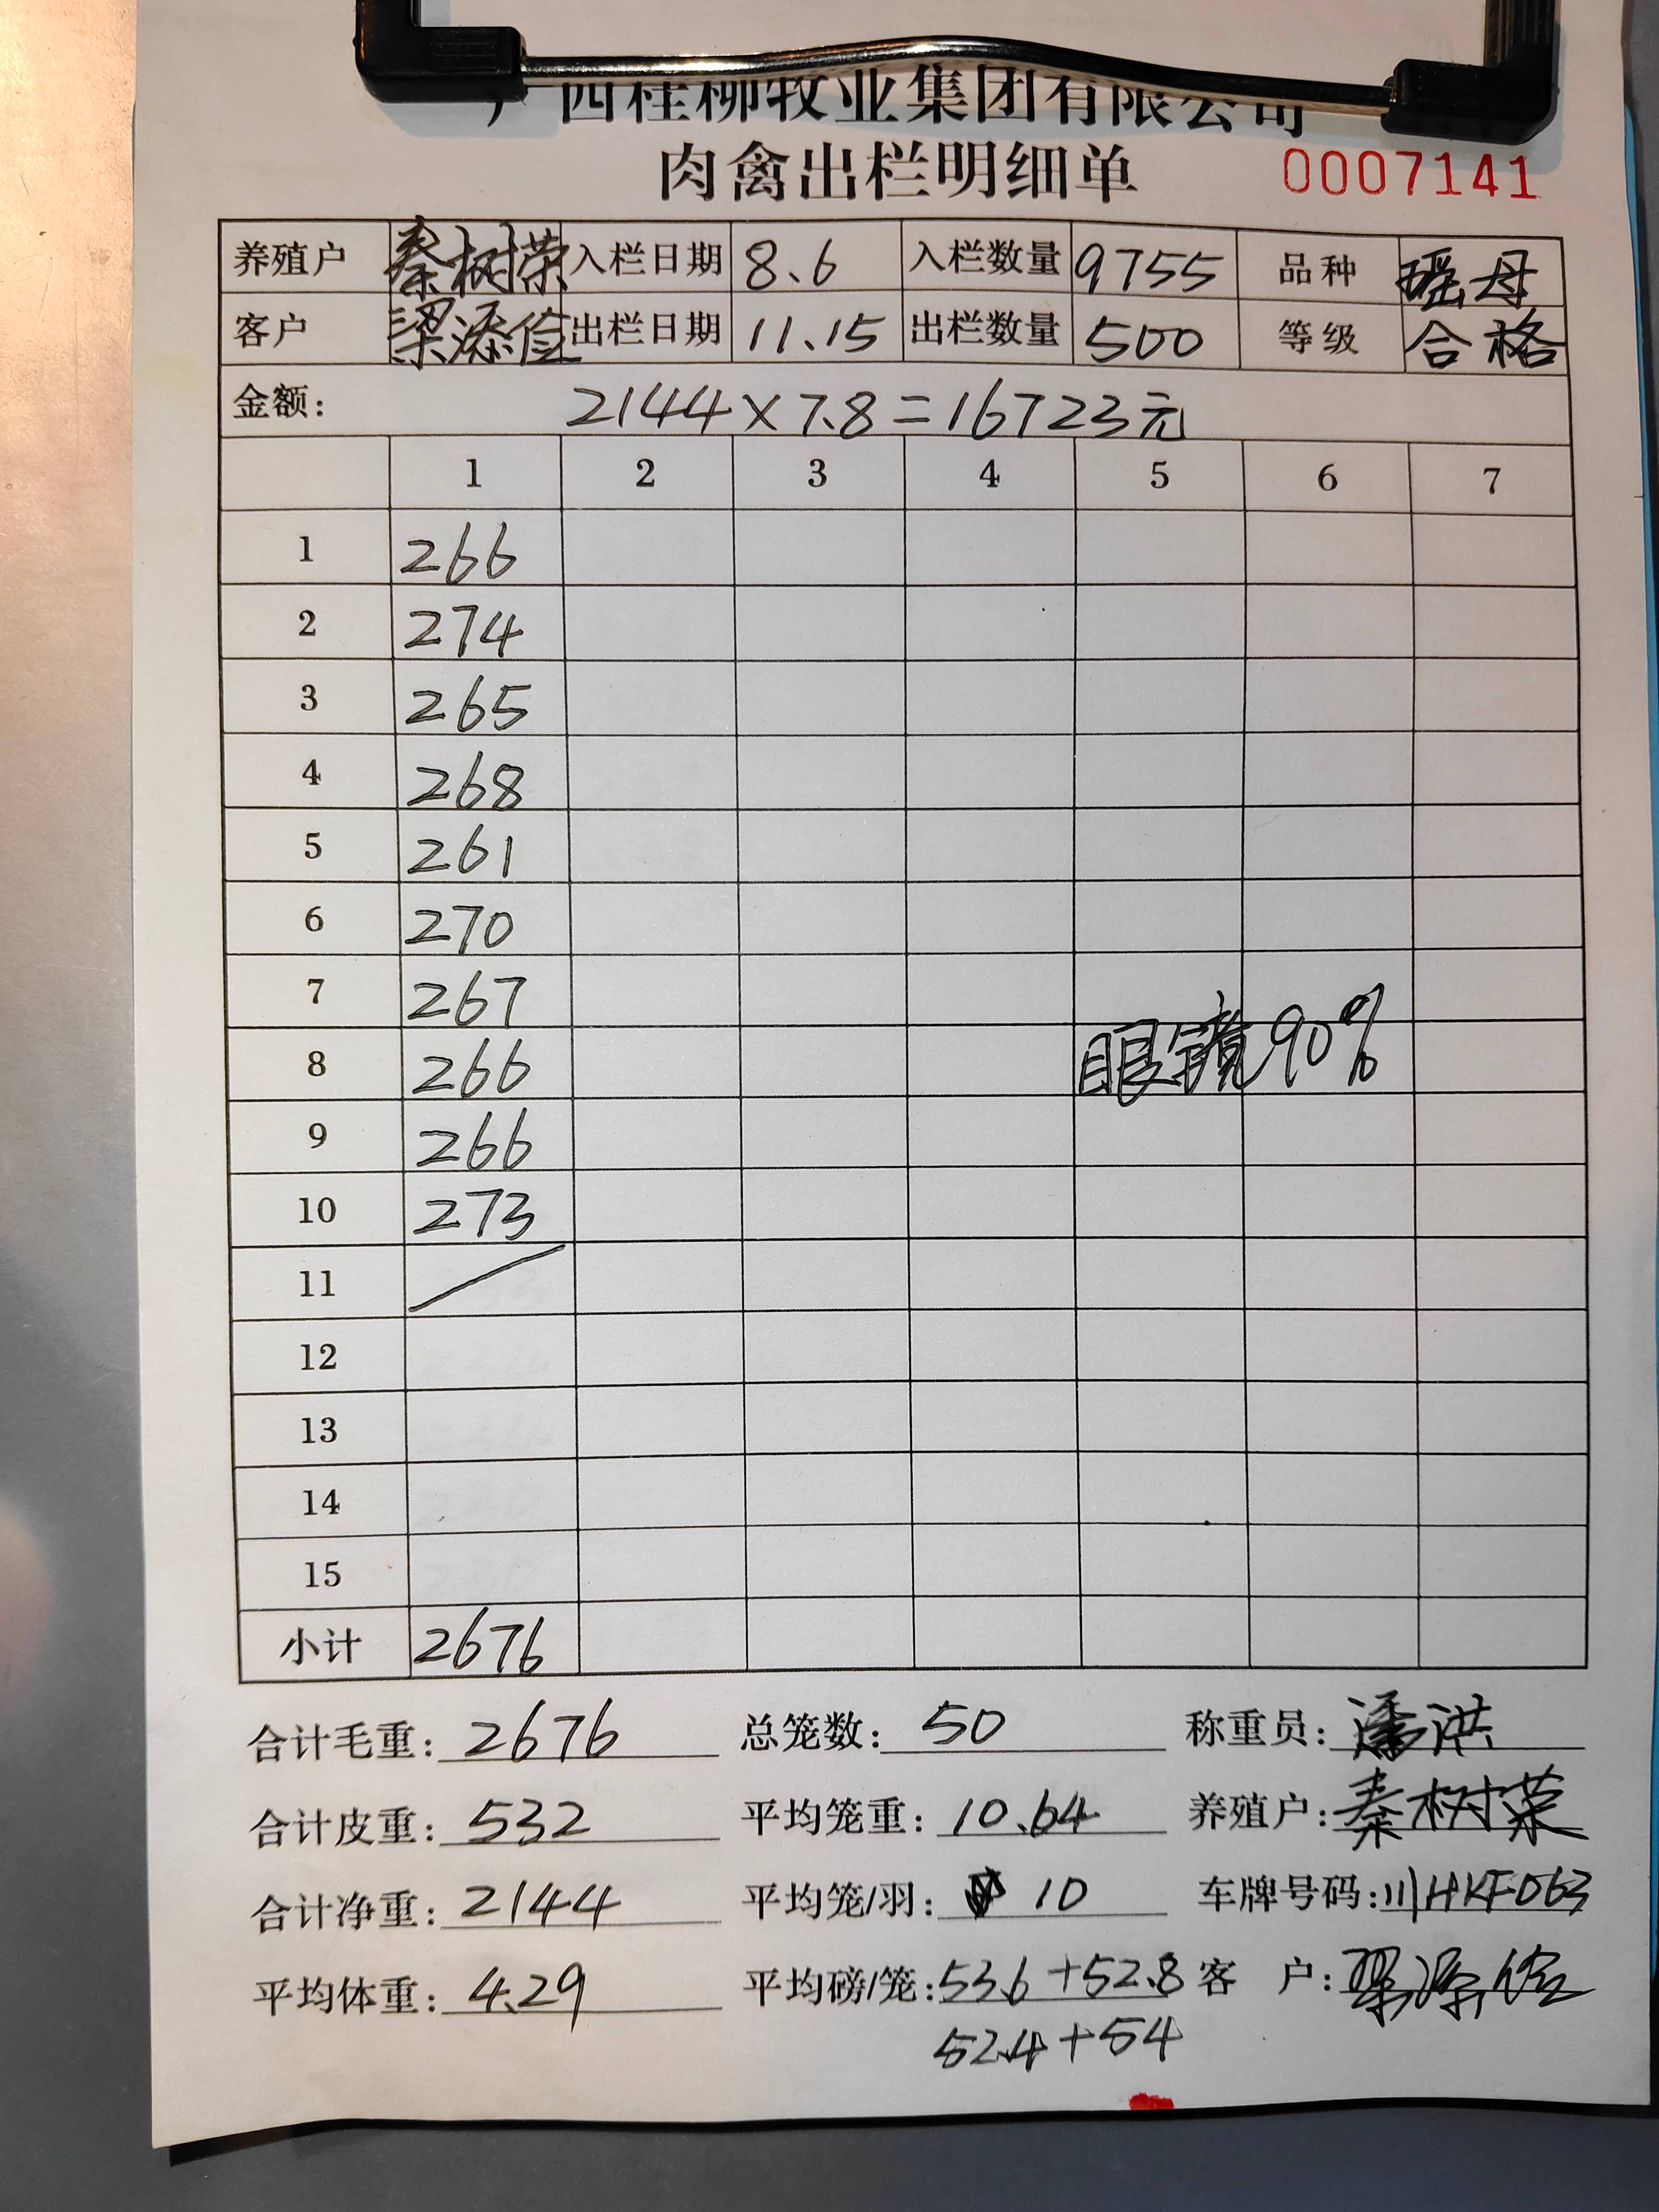 广西桂柳牧业集团有限公司
肉禽出栏明细单 0007141
养殖户 秦树荣 入栏日期 8.6 入栏数量 9755 品种 瑶母
客户 梁添俭 出栏日期 11.15 出栏数量 500 等级 合格
金额: 2144×7.8=16723元
1 2 3 4 5 6 7
1 266
2 274
3 265
4 268
5 261
6 270
7 267
8 266 眼镜90%
9 266
10 273
11
12
13
14
15
小计 2676
合计毛重: 2676 总笼数: 50 称重员: 潘洪
合计皮重: 532 平均笼重: 10.64 养殖户: 秦树荣
合计净重: 2144 平均笼/羽: 10 车牌号码: 川HKF063
平均体重: 4.29 平均磅/笼: 53.6+52.8 客 户:
52.4+54